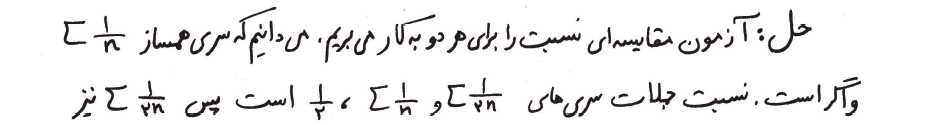 حل: آزمون مقایسه‌ای نسبت را برای هر دو به کار می بریم. می دانیم که سری همساز ∑ ۱/n
واگر است. نسبت جملات سری های ∑ ۱/۲n و ∑ ۱/n ، ۱/۲ است پس ∑ ۱/۲n نیز